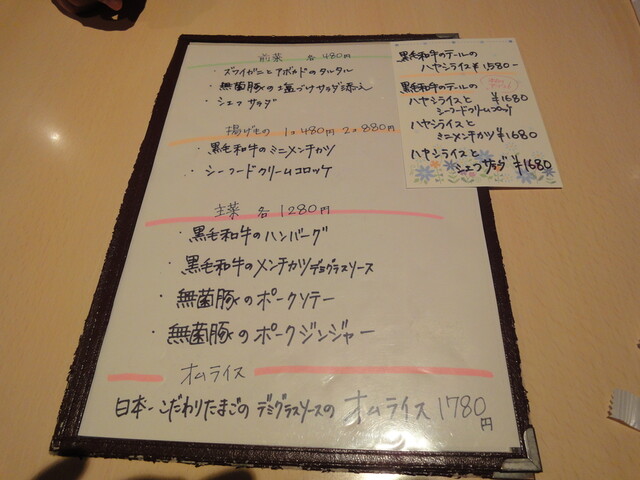 前菜 各480円
・ズワイガニとアボカドのタルタル
・無菌豚の塩づけサラダ添え
・シェフサラダ
揚げもの 1ヶ480円 2ヶ880円
・黒毛和牛のミニメンチカツ
・シーフードクリームコロッケ
主菜 各1280円
・黒毛和牛のハンバーグ
・黒毛和牛のメンチカツデミグラスソース
・無菌豚のポークソテー
・無菌豚のポークジンジャー
オムライス
日本一こだわりたまごのデミグラスソースのオムライス1780円
黒毛和牛のテールの
ハヤシライス¥1580-
黒毛和牛のテールの
ハヤシライスと ¥1680
シーフードクリームコロッケ
ハヤシライスと
ミニメンチカツ¥1680
ハヤシライスと
シェフサラダ¥1680